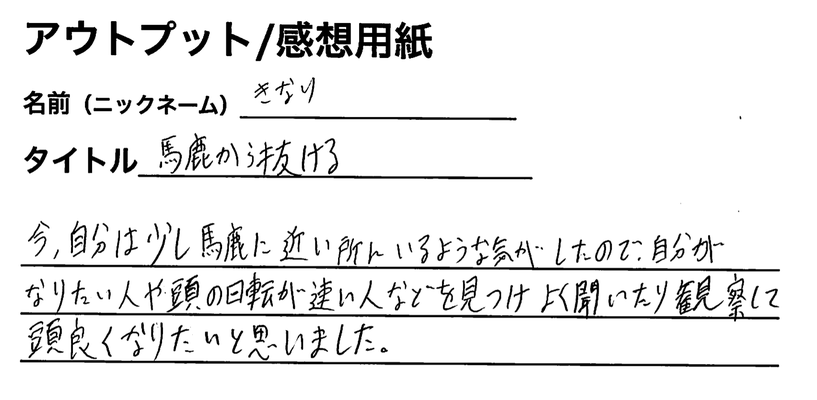 アウトプット/感想用紙
名前（ニックネーム） きなり
タイトル 馬鹿から抜ける
今,自分は少し馬鹿に近い所にいるような気がしたので、自分が
なりたい人や頭の回転が速い人などを見つけよく聞いたり観察して
頭良くなりたいと思いました。